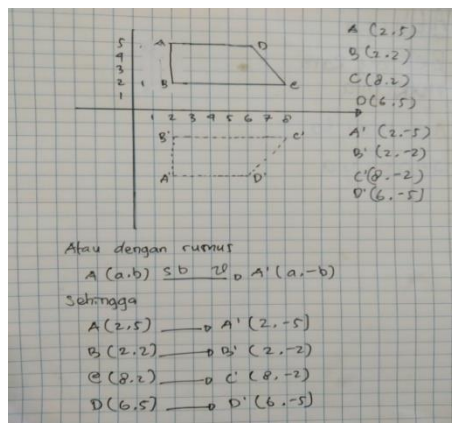 5 A D
4
3
2 B C
1
1 2 3 4 5 6 7 8
B' C'
A' D'
A (2,5)
B (2.2)
C (8.2)
D (6,5)
A' (2.-5)
B' (2,-2)
C' (8.-2)
D' (6,-5)
Atau dengan rumus
A (a.b) sb A' (a.-b)
Sehingga
A (2,5) A' (2.-5)
B (2.2) B' (2,-2)
C (8.2) C' (8,-2)
D (6,5) D' (6,-5)